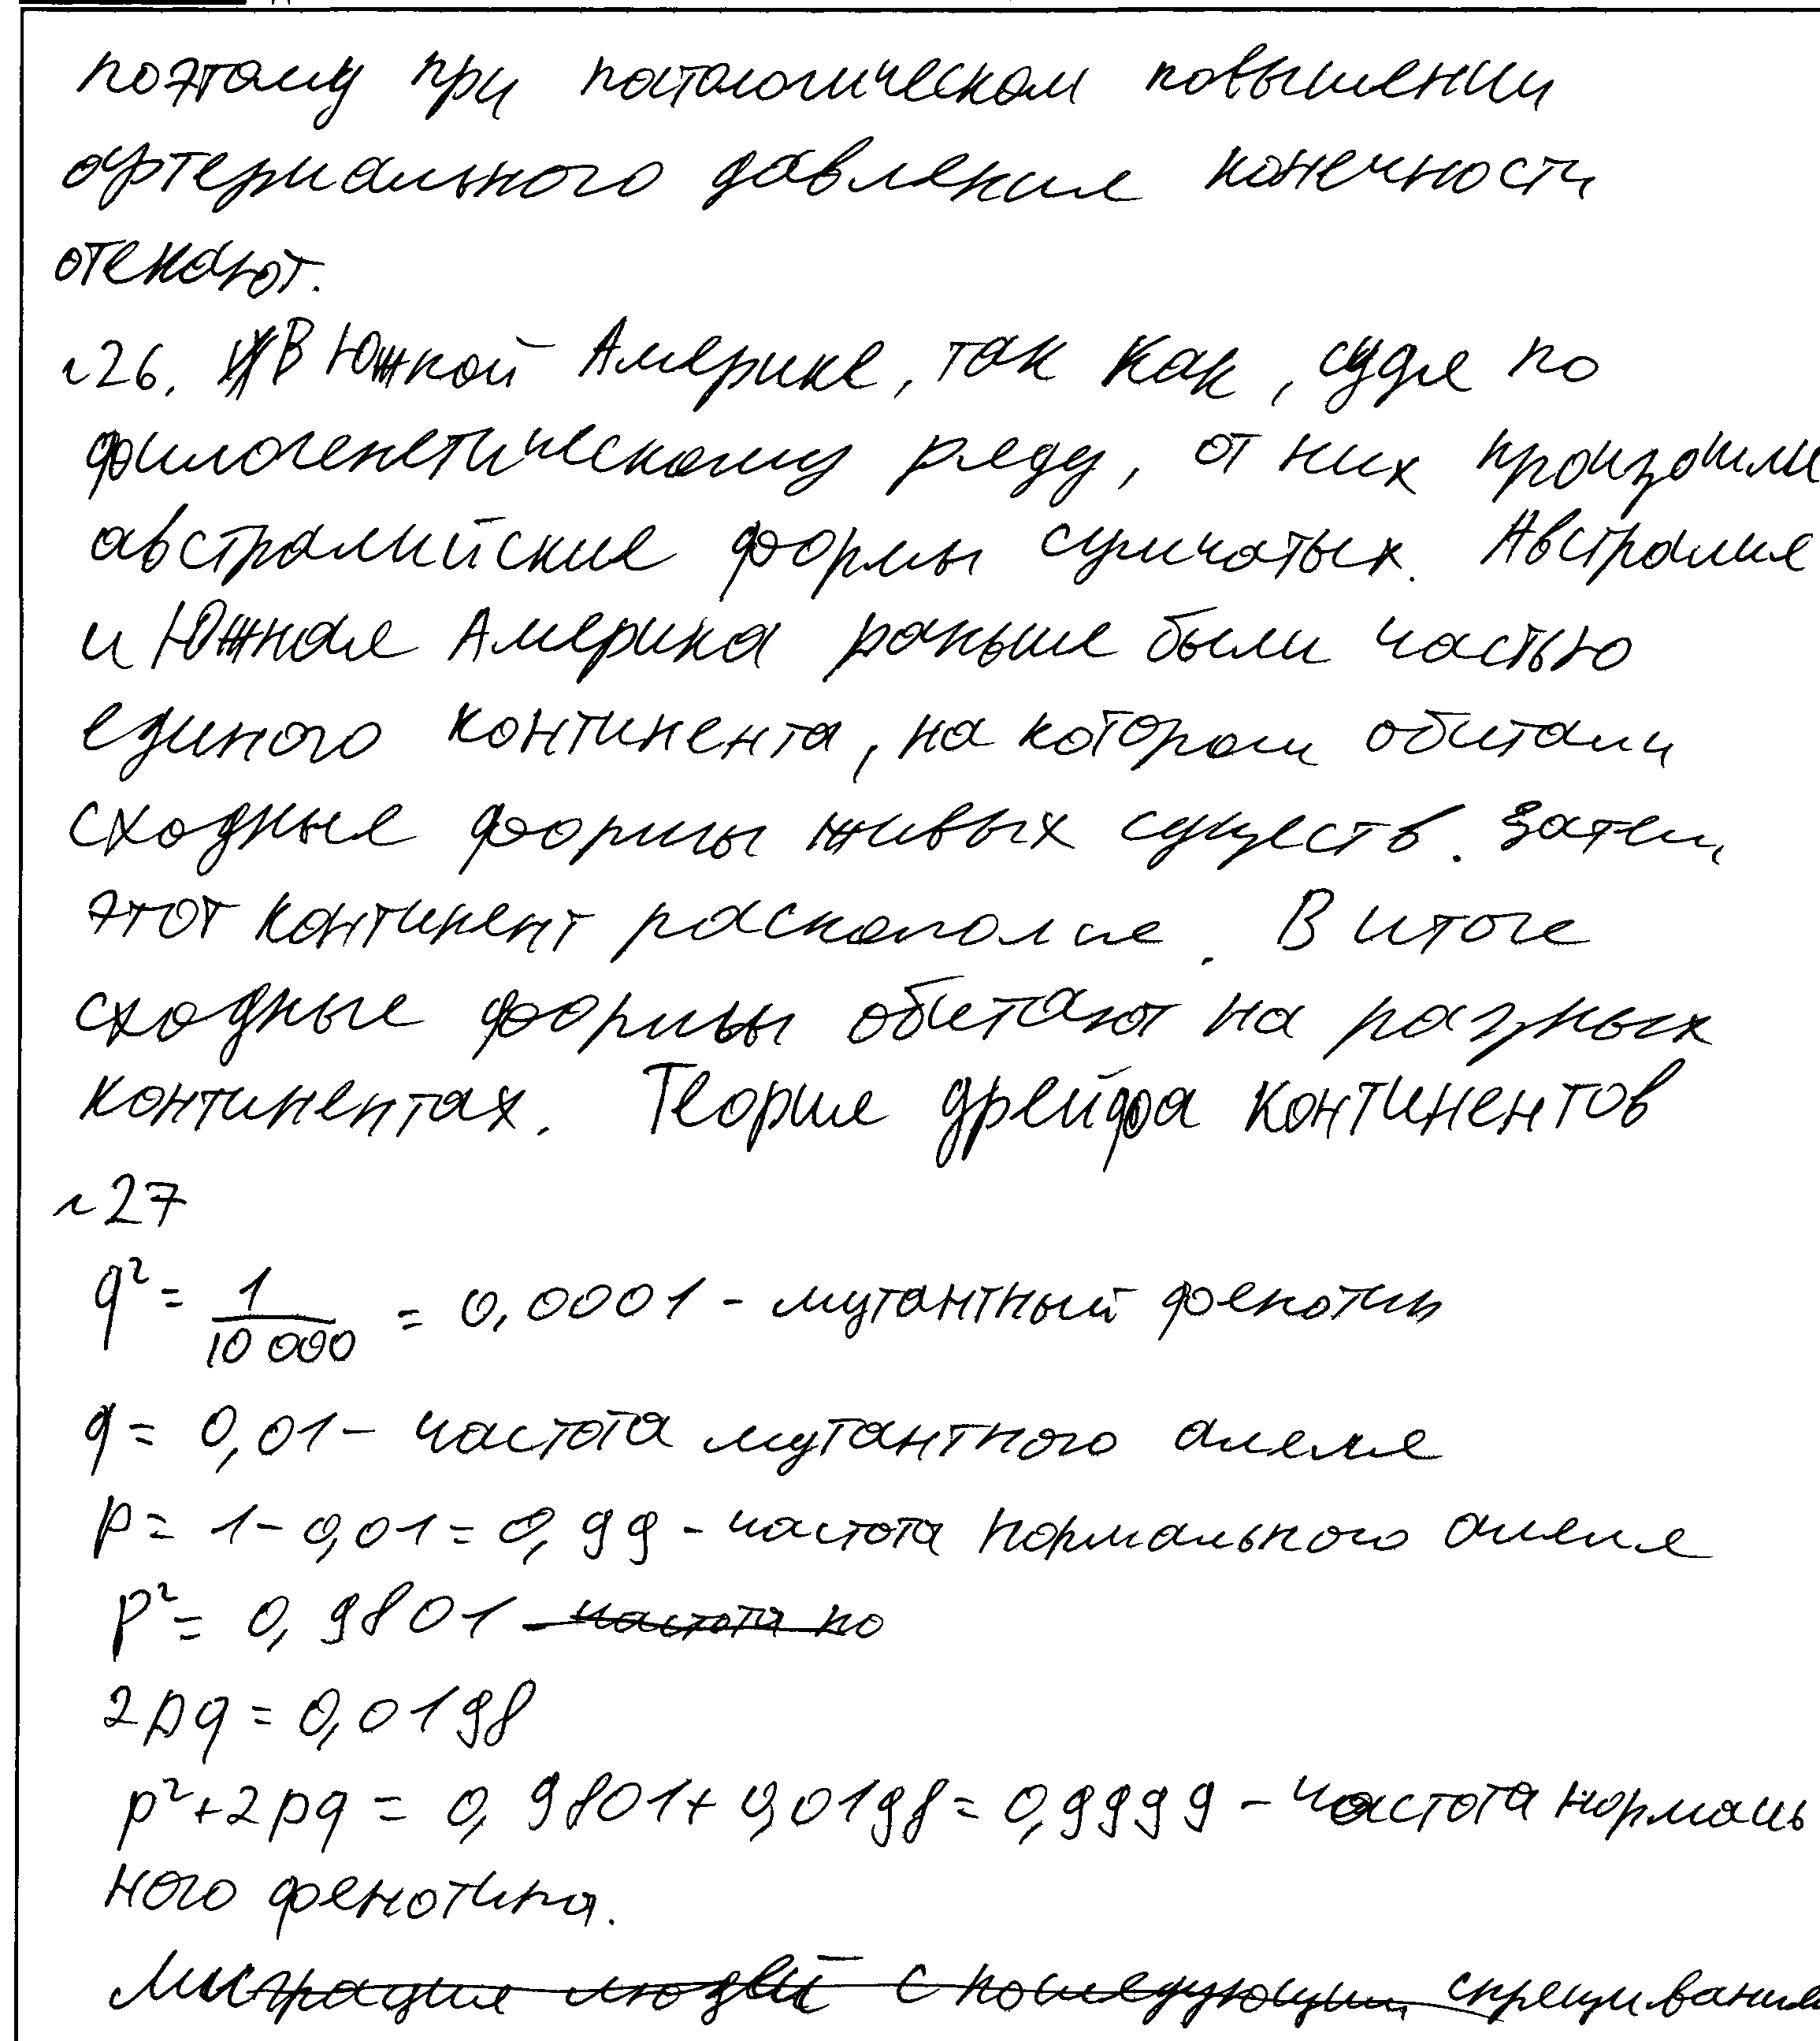 поэтому при патологическом повышении
артериального давления конечности
отекают.
№26. В Южной Америке, так как, судя по
филогенетическому ряду, от них произошли
австралийские формы сумчатых. Австралия
и Южная Америка раньше были частью
единого континента, на котором обитали
сходные формы живых существ. Затем
этот континент раскололся. В итоге
сходные формы обитают на разных
континентах. Теория дрейфа континентов
№27
q² = 1/10 000 = 0,0001 - мутантный фенотип
q = 0,01 - частота мутантного аллеля
p = 1 - 0,01 = 0,99 - частота нормального аллеля
p² = 0,9801 - частота но
2pq = 0,0198
p² + 2pq = 0,9801 + 0,0198 = 0,9999 - частота нормаль
ного фенотипа.
Миграция людей с последующим скрещиванием